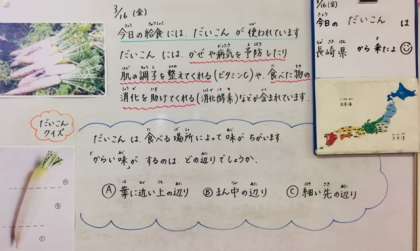 3/16(金)
今日の給食には だいこん が 使われています
だいこん には、かぜや病気を予防したり
肌の調子を整えてくれる(ビタミンC)や、食べた物の
消化を助けてくれる(消化酵素)などが含まれています。
3/16(金)
今日の だいこん は
長崎県 から来たよ
だいこん
クイズ
だいこん は、食べる場所によって 味が ちがいます
"からい味"が するのは どの辺りでしょうか、
Ⓐ 葉に近い上の辺り Ⓑ まん中の辺り Ⓒ 細い先の辺り
Ⓐ
Ⓑ
Ⓒ